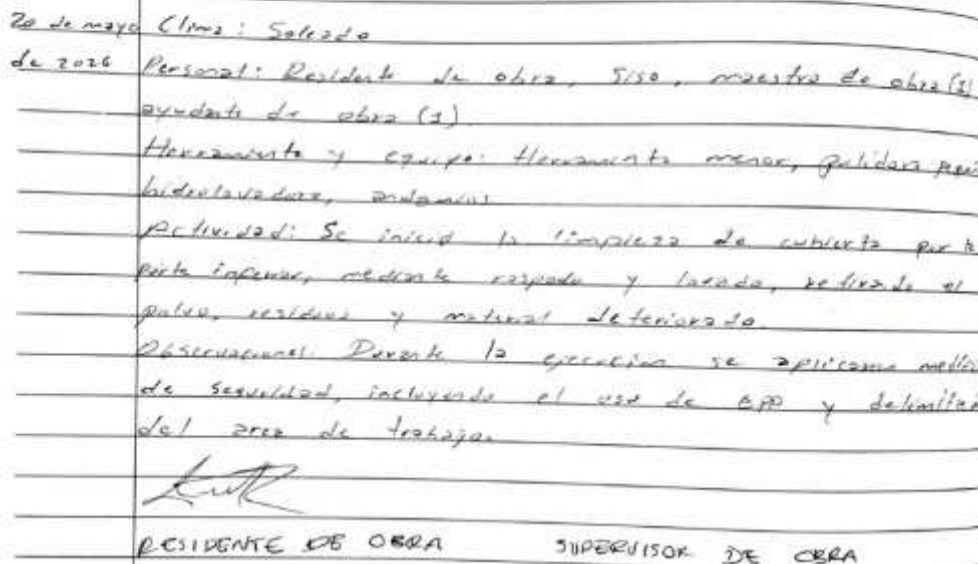 20 de mayo Clima: Soleado
de 2026 Personal: Residente de obra, SISO, maestro de obra (1)
ayudante de obra (1)
Herramienta y equipo: Herramienta menor, pulidora
hidrolavadora, andamios
Actividad: Se inició la limpieza de cubierta por la
parte inferior, mediante raspado y lavado, retirando el
polvo, residuos y material deteriorado.
Observaciones: Durante la ejecución se aplicaron medidas
de seguridad, incluyendo el uso de EPP y
del area de trabajo.
RESIDENTE DE OBRA SUPERVISOR DE OBRA